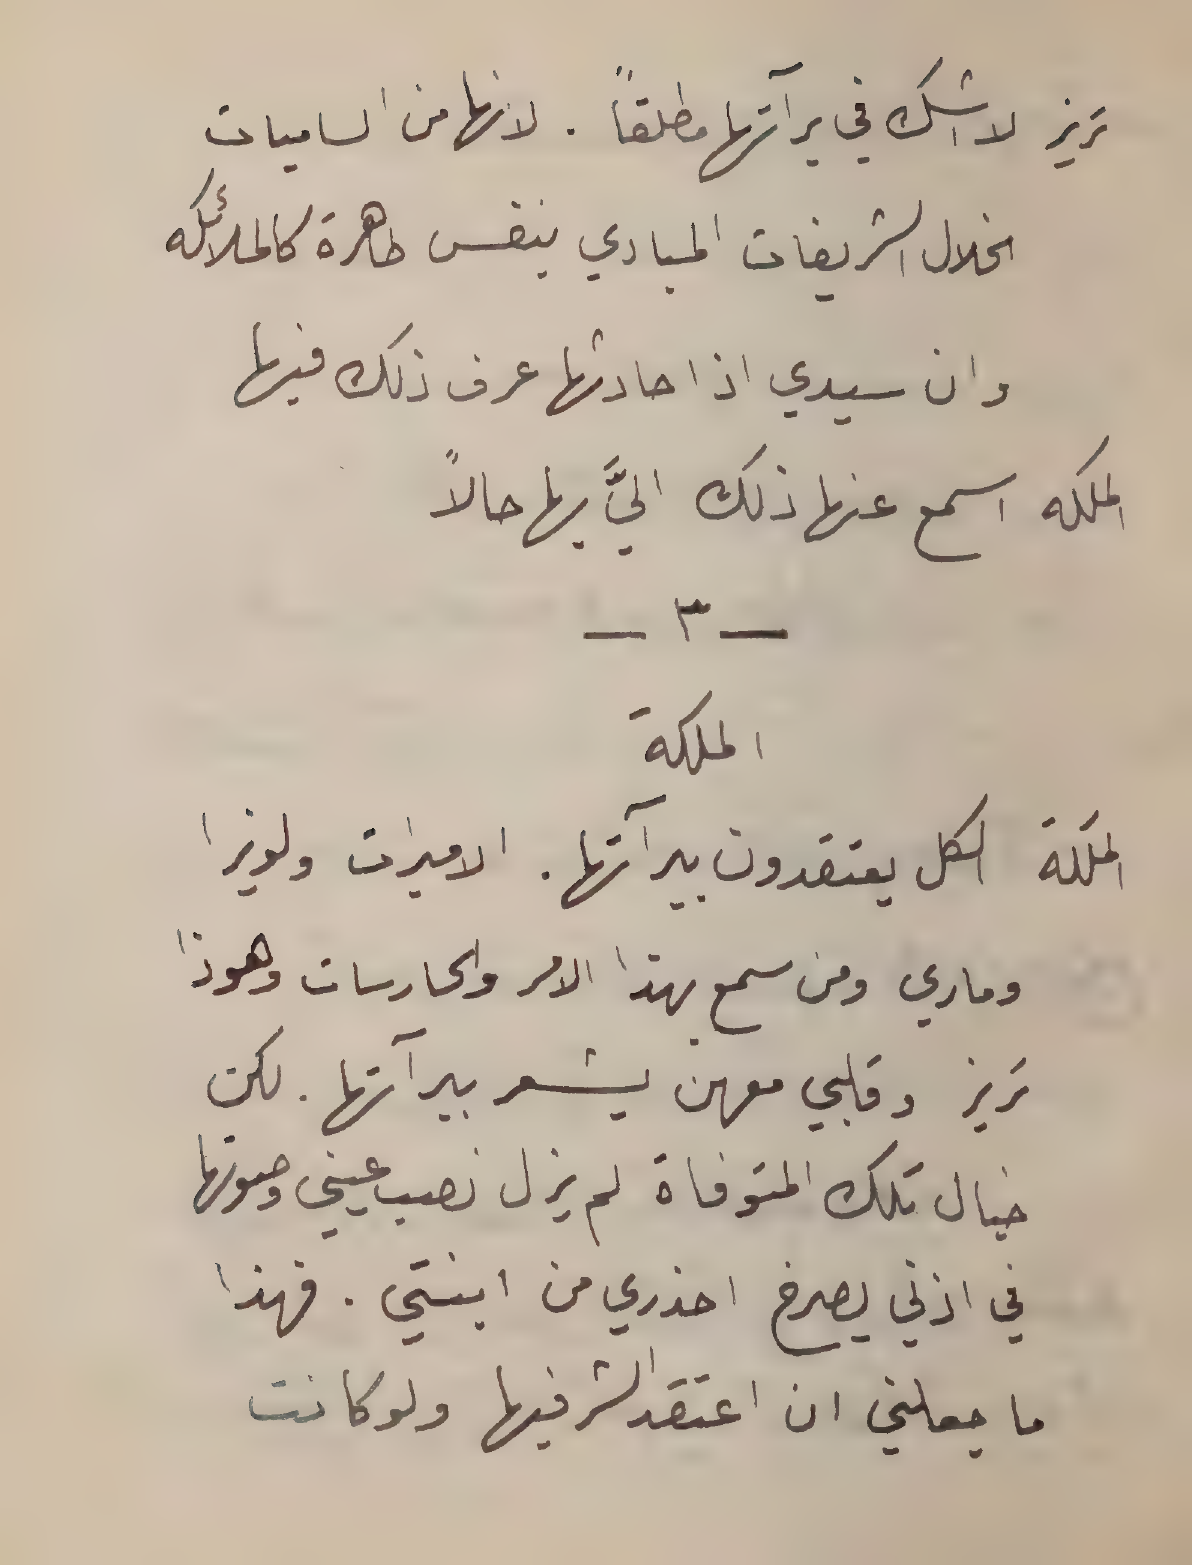 تريز لا اشك في برآتها مطلقاً . لانها من الساميات
الخلال الشريفات المبادي بنفس طاهرة كالملائكه
وان سيدي اذا حادثها عرف ذلك فيها
الملكه اسمع عنها ذلك اليَّ بها حالاً
— ٣ —
الملكة
الملكة الكل يعتقدون ببرآتها . الاميرات ولويزا
وماري ومن سمع بهذا الامر والحارسات وهوذا
تريز وقلبي معهن يشعر ببرآتها . لكن
خيال تلك المتوفاة لم يزل نصب عيني وصوتها
في اذني يصرخ احذري من ابنتي . فهذا
ما جعلني ان اعتقد الشر فيها ولو كانت